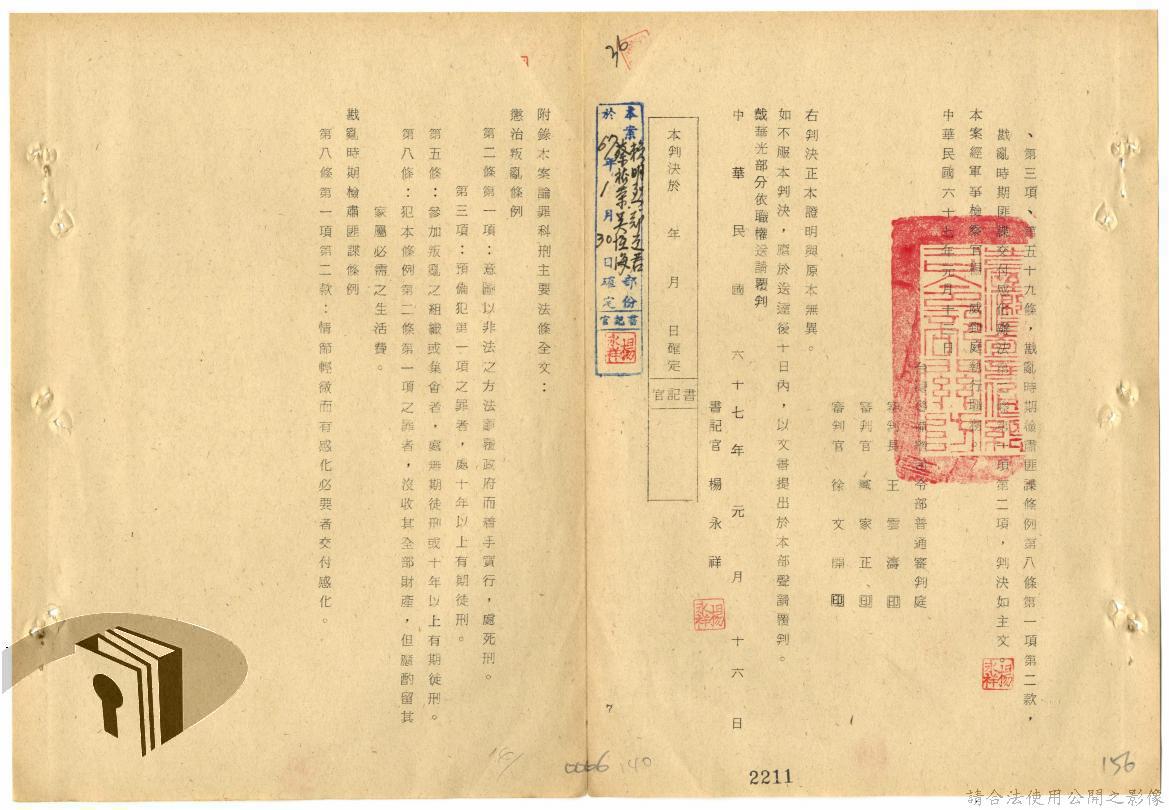 、第三項、第五十九條，戡亂時期檢肅匪諜條例第八條第一項第二款，
戡亂時期匪諜交付感化辦法第二條第一項第二項，判決如主文。
本案經軍事檢察官 到庭執行職務。
中華民國六十七年元月十二日
令部普通審判庭
審判長 王雲濤 印
審判官 家正 印
審判官 徐文開 印
右判決正本證明與原本無異。
如不服本判決，應於送達後十日內，以文書提出於本部聲請覆判。
戴華光部分依職權送請覆判
中華民國六十七年元月十六日
書記官 楊永祥
楊永祥
本判決於 年 月 日確定
書記官
本案賴明烈、鄭道君
蔡裕榮、吳恆海部份
於67年1月30日確定
書記官
楊永祥
36
7
0006
140
2211
156
附錄本案論罪科刑主要法條全文：
懲治叛亂條例
第二條第一項：意圖以非法之方法顛覆政府而着手實行，處死刑。
第三項：預備犯第一項之罪者，處十年以上有期徒刑。
第五條：參加叛亂之組織或集會者，處無期徒刑或十年以上有期徒刑。
第八條：犯本條例第二條第一項之罪者，沒收其全部財產，但應酌留其
家屬必需之生活費。
戡亂時期檢肅匪諜條例
第八條第一項第二款：情節輕微而有感化必要者交付感化。
請合法使用公開之影像